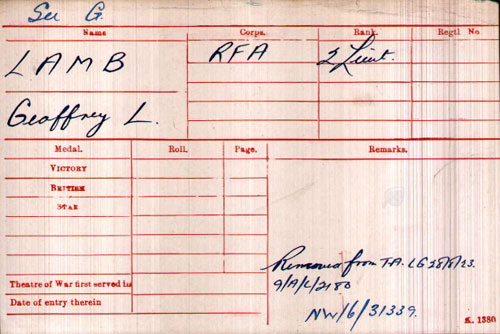 See G.
Name Corps. Rank. Regtl No
LAMB RFA 2 Lieut.
Geoffrey L.
Medal. Roll. Page. Remarks.
VICTORY
BRITISH
STAR
Removed from T.A. LG 28/8/23.
Theatre of War first served in 9/A/L/2180
Date of entry therein NW/6/31339. K. 1380